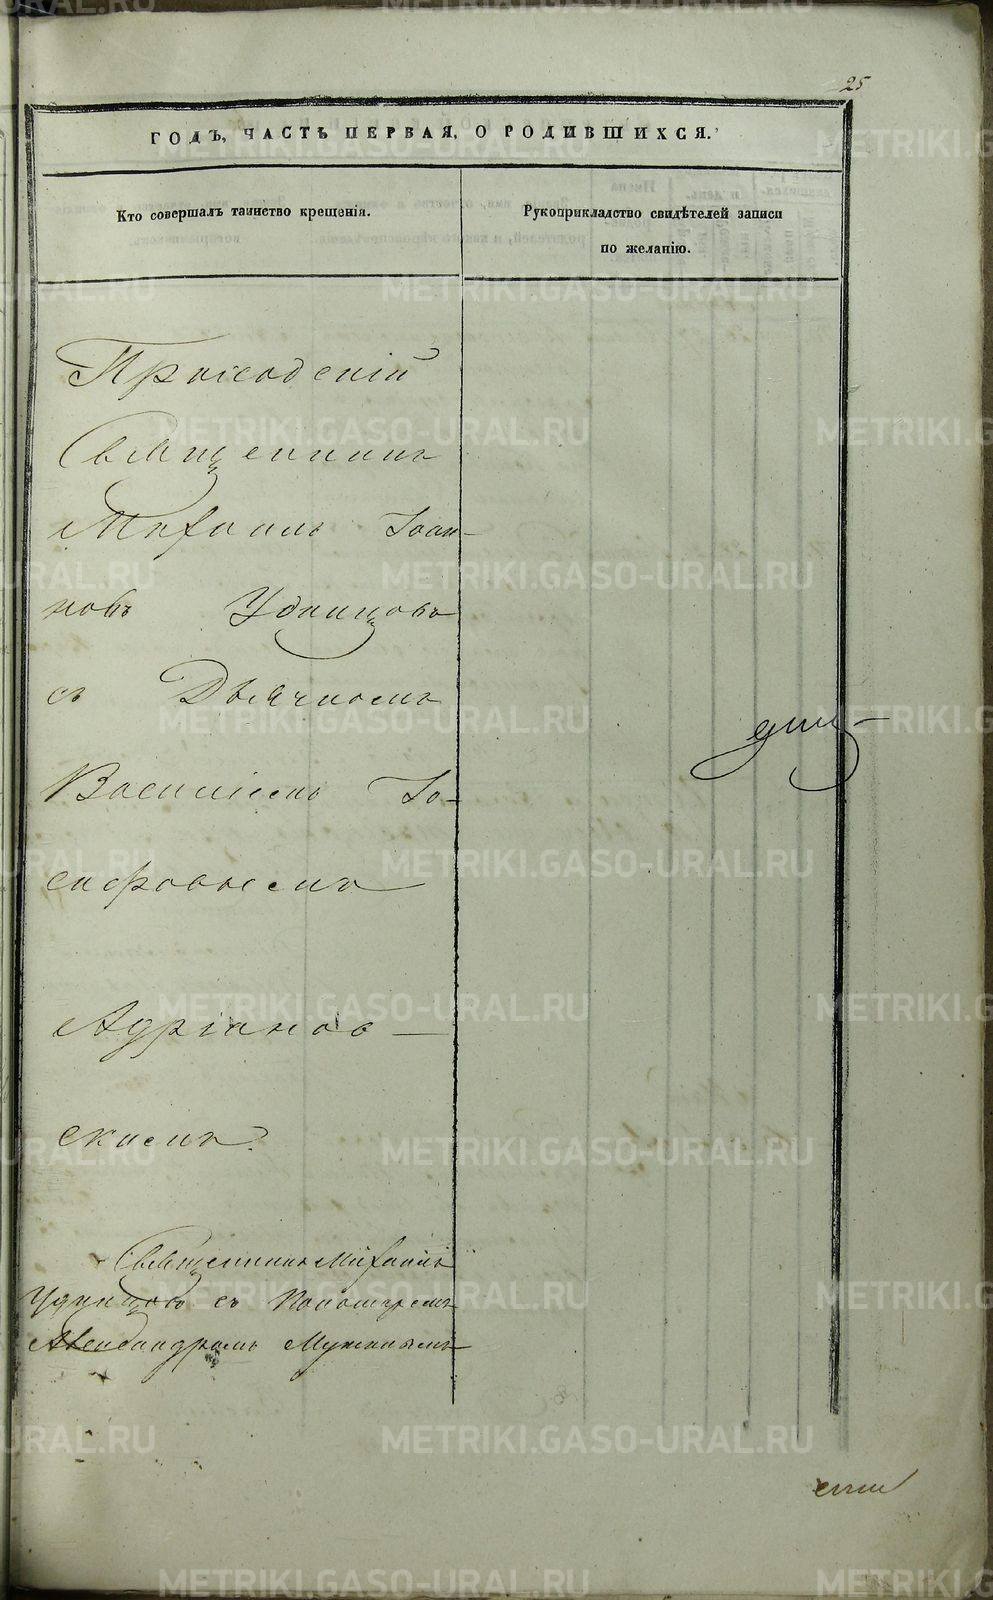 25
ГОДЪ, ЧАСТЬ ПЕРВАЯ, О РОДИВШИХСЯ.
Кто совершалъ таинство крещенія.
Рукоприкладство свидѣтелей записи
по желанію.
Приходскій
Священникъ
Михаилъ Іоан-
новъ Удинцовъ
съ Дьячкомъ
Василіемъ Іо-
сифовымъ
Адріанов-
скимъ
Священникъ Михаилъ
Удинцовъ съ Пономаремъ
Александромъ
METRIKI.GASO-URAL.RU